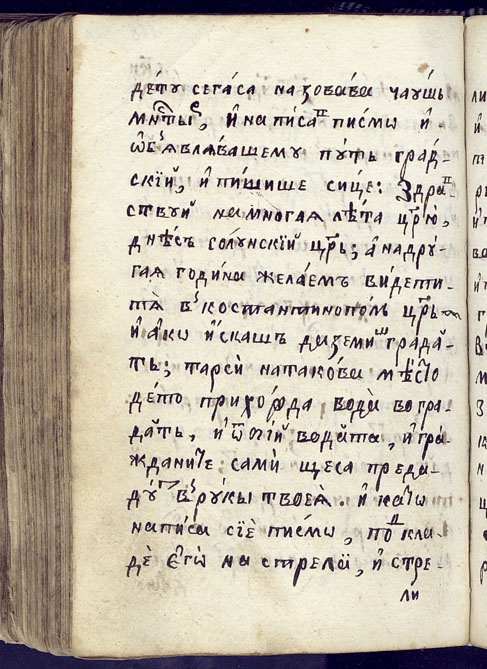 дету сегаса назовава чаушь
мнты́с, и написа писмо и
ѡб̾являвашему путь град-
скїй, и пишише сице: Здра-
ствуй на многая лѣта црю,
днесъ солунскїй црь; а надру-
гая година желаемъ видети-
тя в̾ костантинополъ црь
и ако искашъ да земишъ града-
тъ; тарси накова мѣсто
дето приходѧ вода во гра-
датъ, и ѿбїй водата, и гра-
жданите сами щеса преда-
дутъ в̾ рукы твоея. и като
написа сїе писмо, покла-
де его на стрела, и стре-
ли